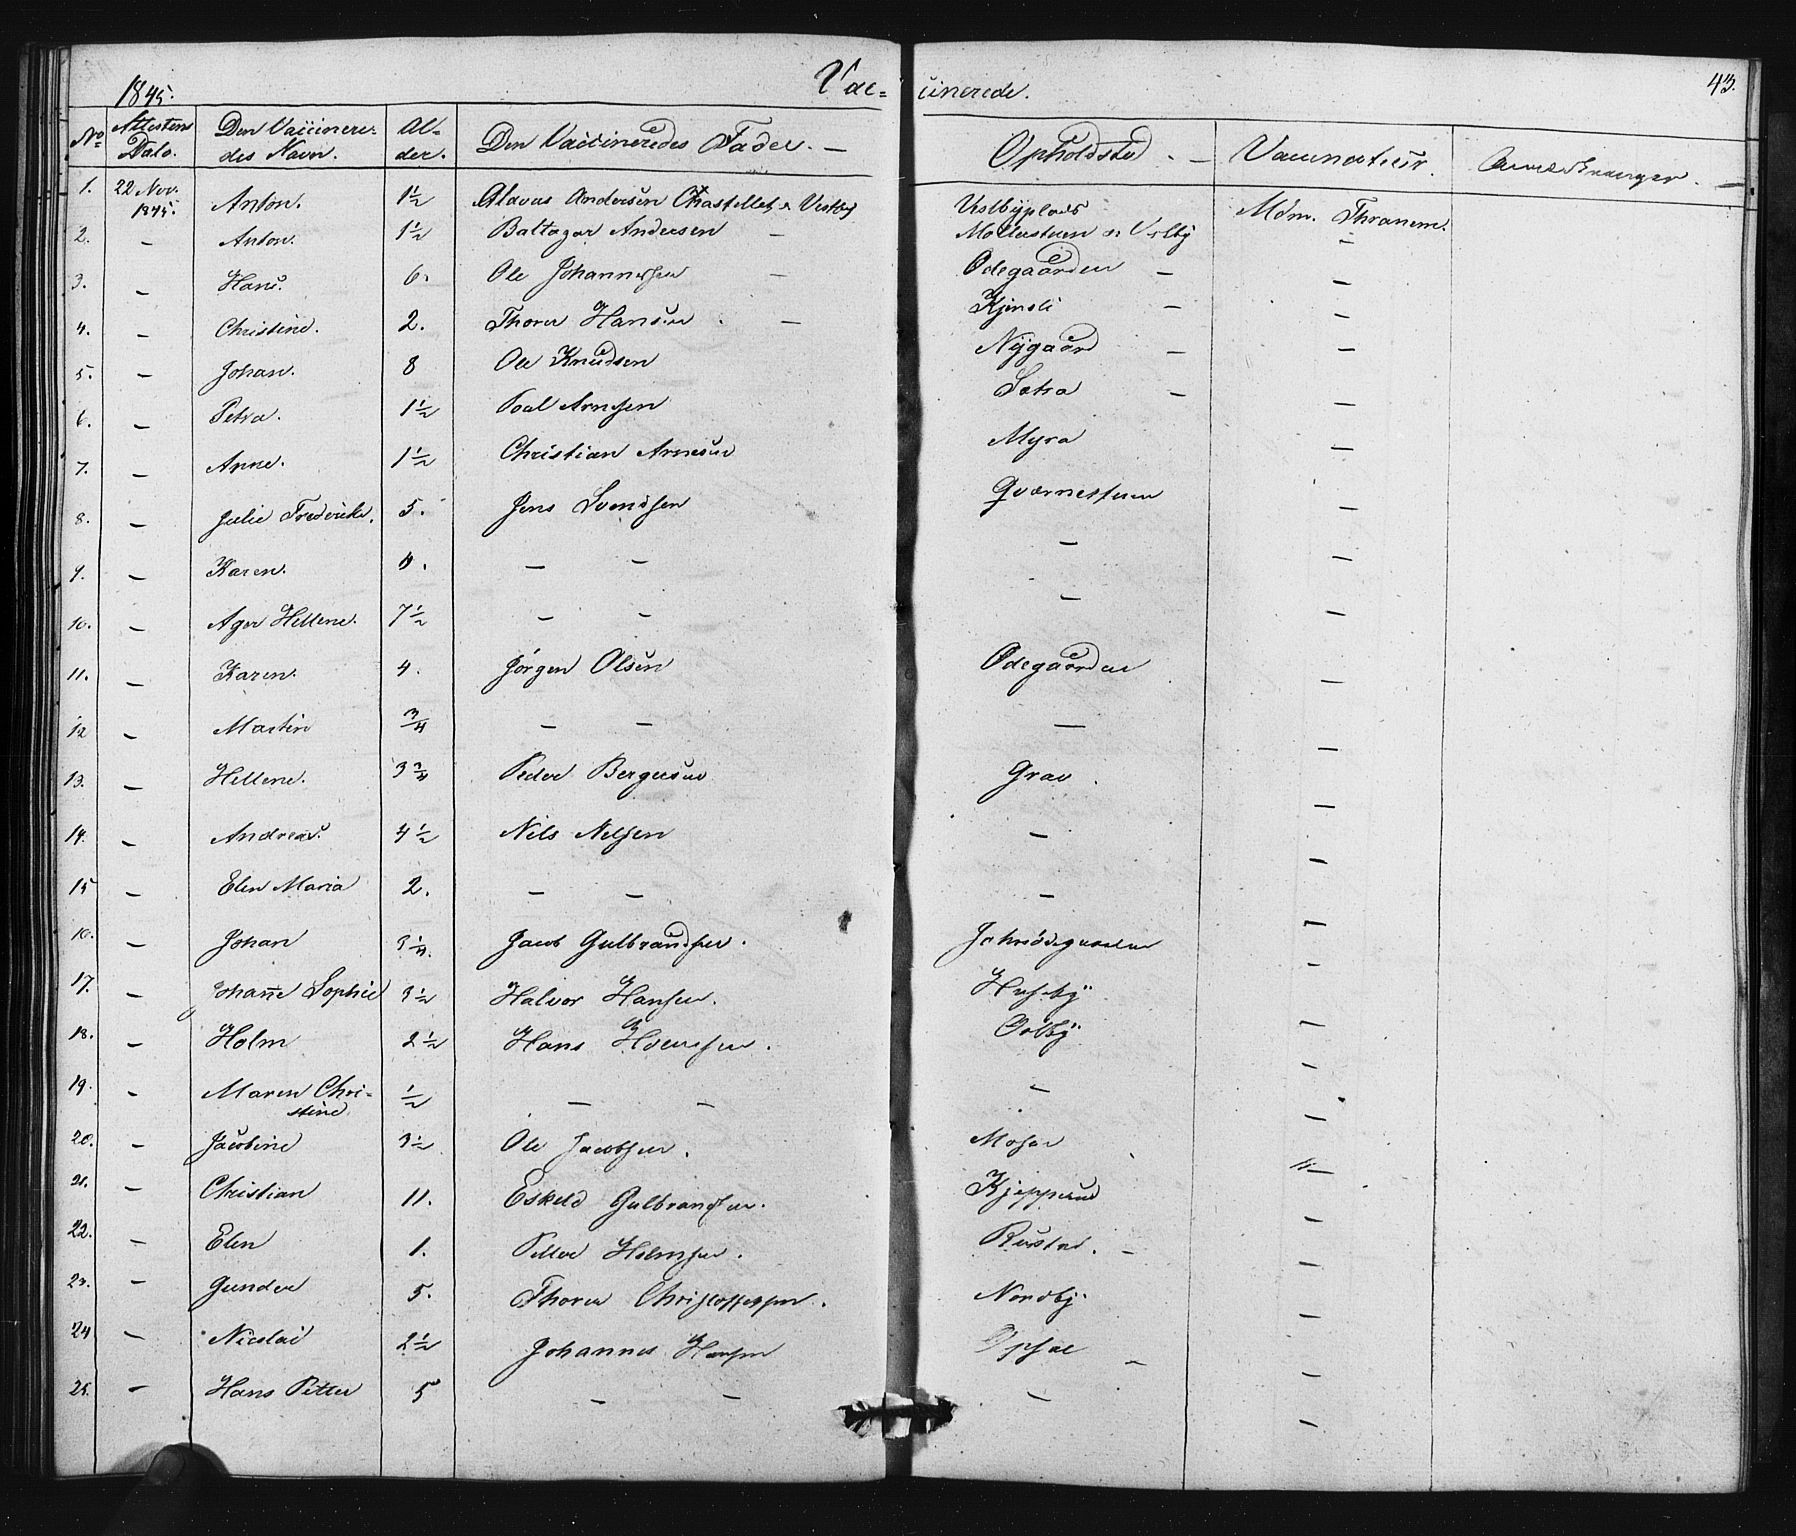 1845. Vac= cinerede. 43.
No Attestens Dato. Den Vaccinere= des Navn. Al= der. Den Vaccineredes Fader. — Opholdsted. — Vaccinateur. Anmærkninger. —
1. 22 Nov. 1845. Anton. 1½ Andersen Vestbyplads Mdm. Thranem.
2. — Anton. 1½ Baltazar Andersen — Vestby —
3. — Hans. 6. Ole Johannesen — Ødegaarden — —
4. — Christine. 2. Thorer Hansen. — Kjensli — —
5. — Johan. 8 Ole Knudsen Nygaard — —
6. — Petra. 1½ Poal Arnesen Sætra — —
7. — Anne. 1½ Christian Arnesen Myra —
8. — Julie Fredrikke. 5. Jens Svendsen Qvernestuen —
9. — Karen. — — — —
10. — Hellene. 7½ — — — —
11. — Karen. 4. Jørgen Olsen Ødegaarden —
12 — Martin ¾ — — — —
13. — Hellene. 3¾ Peder Bergersen Grav. —
14. — Andreas. 4½ Nils Nelsen — —
15 — Elen Maria 2. — — — —
16. — Johan 3¼. Jacob Gulbrandsen. —
17. — Johanne Sophie 3½ Halvor Hansen. Huseby —
18. — Holm 2½ Hans Ørlby —
19. — Maren Chri=
stine ½ — — — —
20. — Jacobine 3½ Ole Jacobsen. Moser —
21. — Christian 11. Eskeld Gulbrandsen. Kjepperud —
22. — Elen 1. Petter Holmsen. Rustad. — —
23. — Gunder 5. Thorer Christoffersen. Nordby —
24 — Nicolai 2½ Johannes Hansen Opsal — —
25. — Hans Petter 5 — — — —